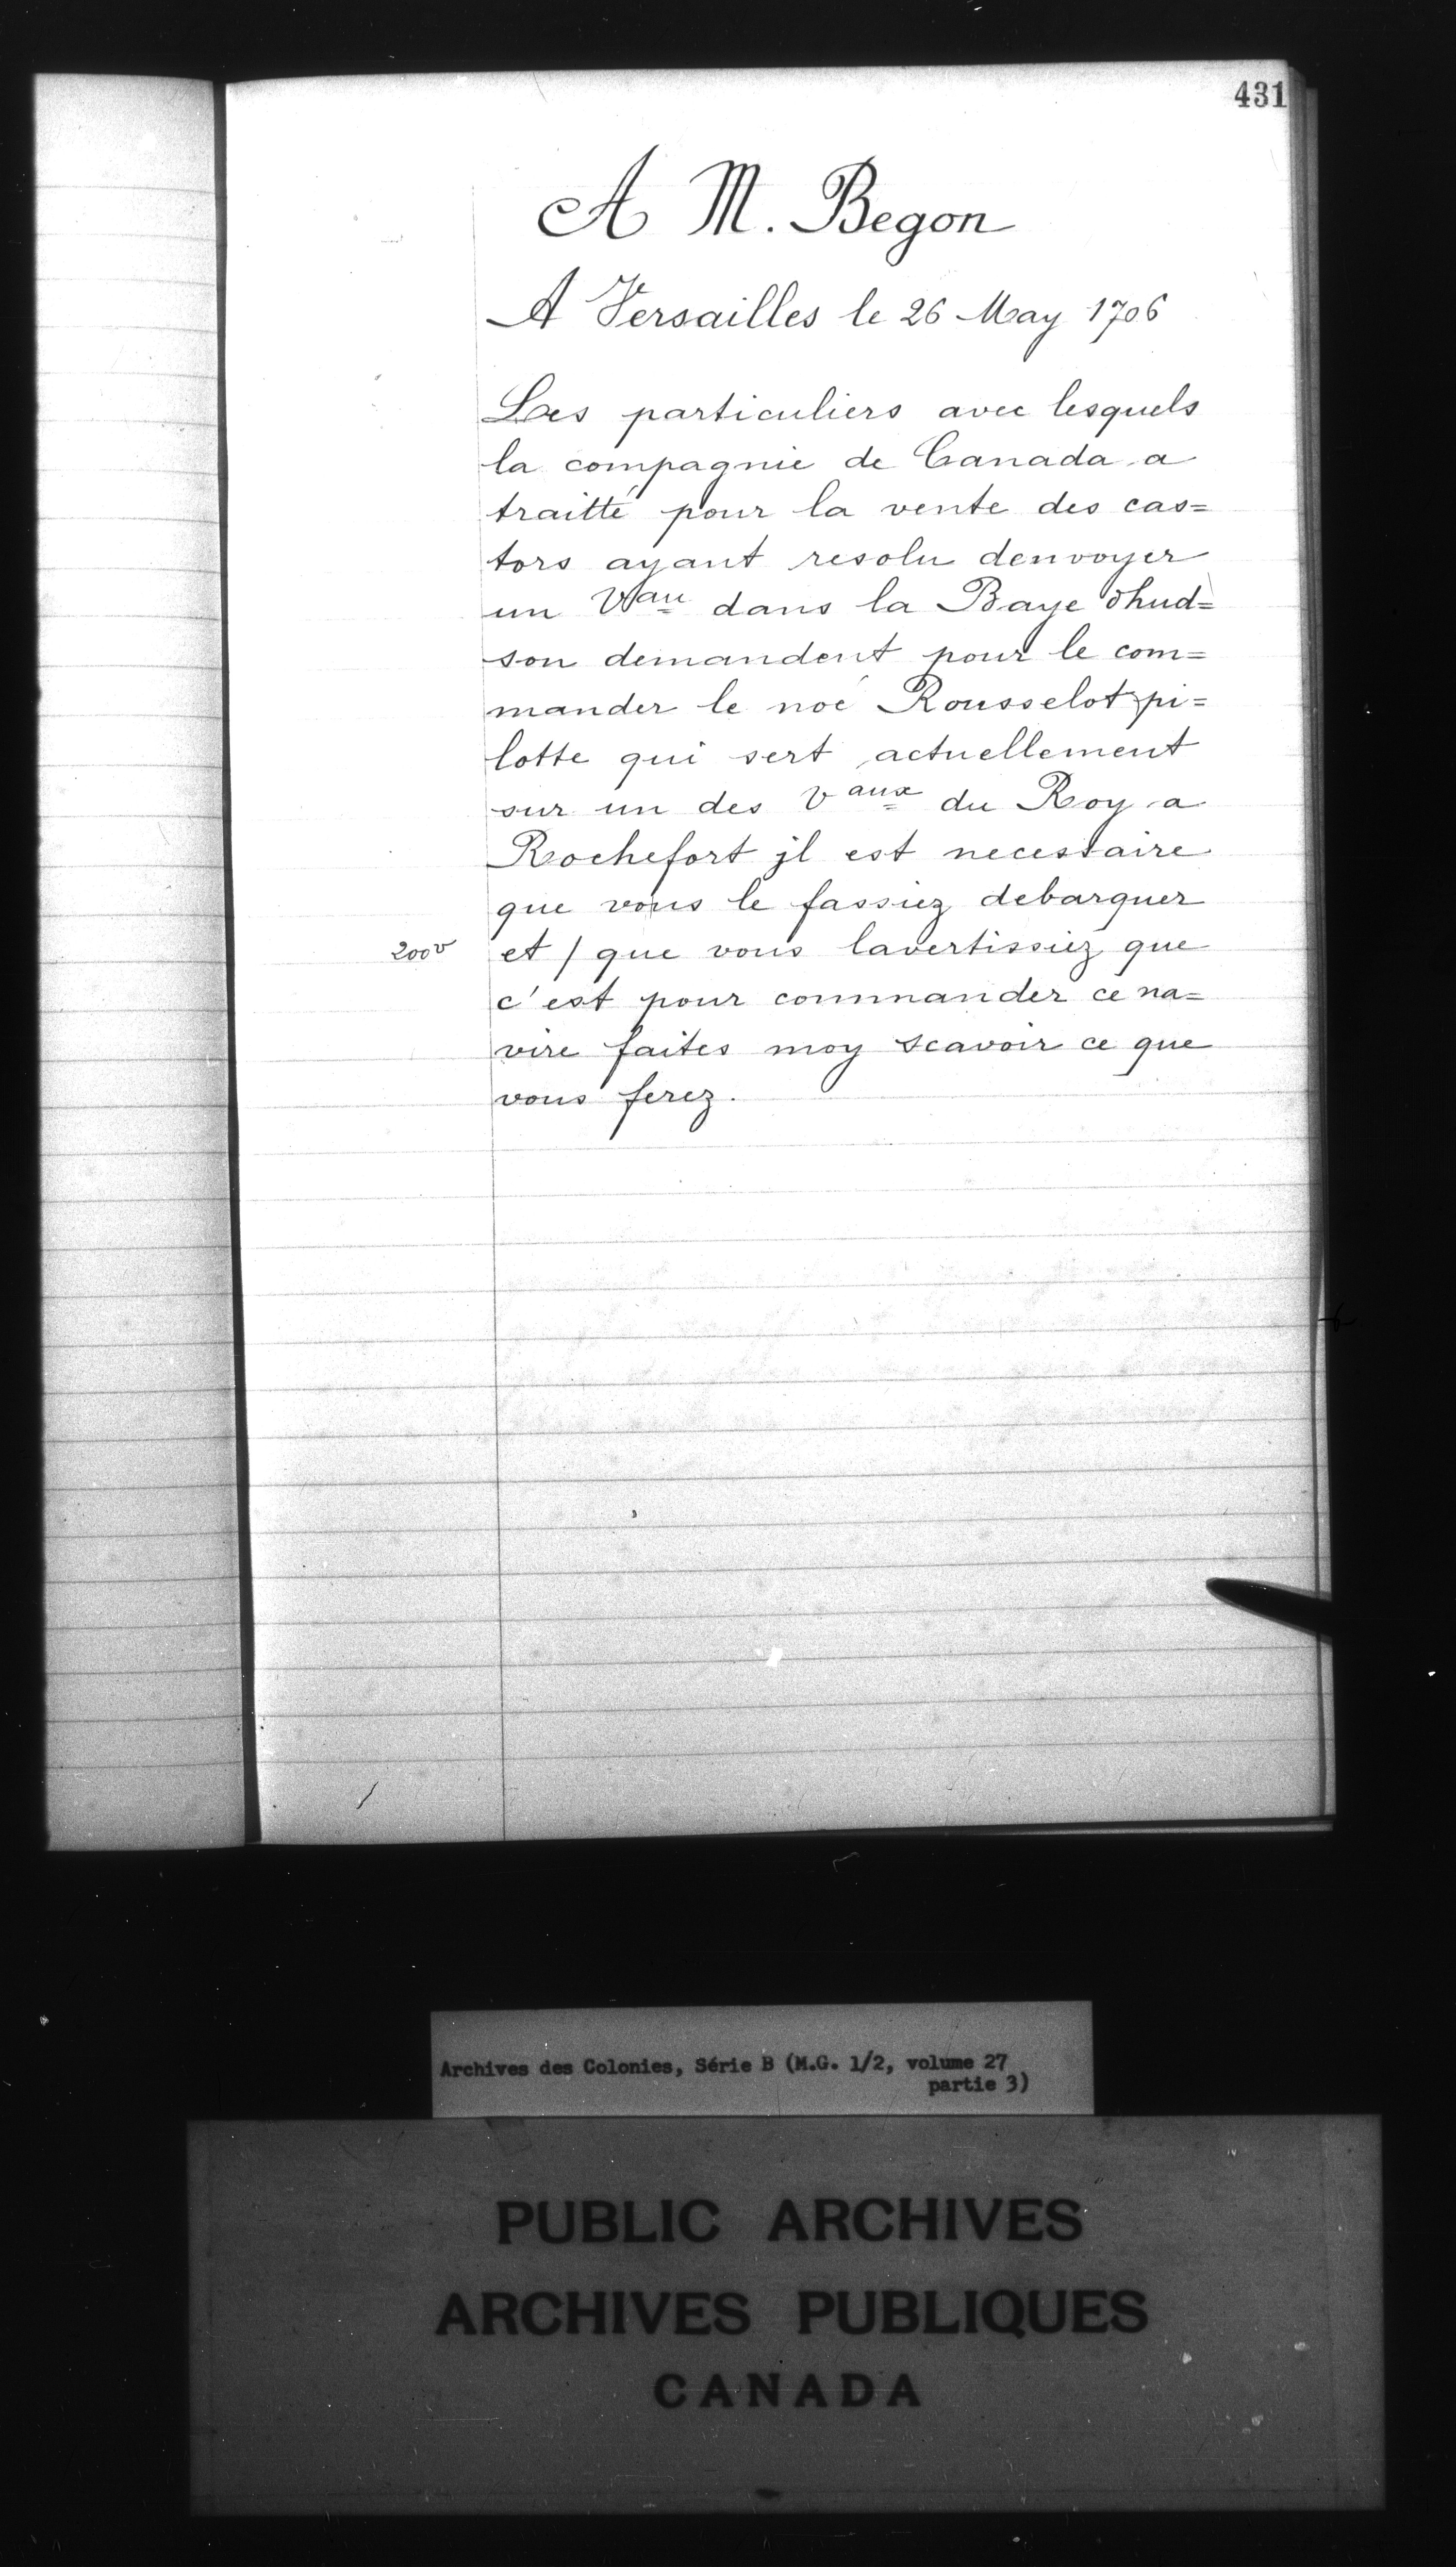 431
A M. Begon
A Versailles le 26 May 1706
Les particuliers avec lesquels
la compagnie de Canada a
traitté pour la vente des cas=
tors ayant resolu denvoyer
un Vau dans la Baye dhud=
son demandent pour le com=
mander le noé Rousselot pi=
lotte qui sert actuellement
sur un des Vaux du Roy a
Rochefort jl est necessaire
que vous le fassiez debarquer
200v et / que vous lavertissiez que
c'est pour commander ce na=
vire faites moy scavoir ce que
vous ferez.
Archives des Colonies, Série B (M.G. 1/2, volume 27
partie 3)
PUBLIC ARCHIVES
ARCHIVES PUBLIQUES
CANADA